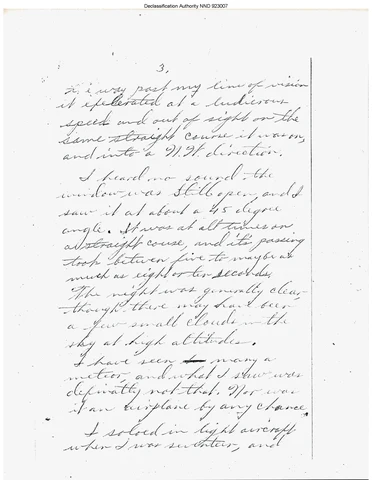 Declassification Authority NND 923007
3.
way past my line of vision
it at a ludicrous
speed and out of sight on the
same straight course it was on,
and into a N.W. direction.
I heard no sound. the
window was still open, and I
saw it at about a 45 degree
angle. It was at all times on
a straight couse, and its passing
took between five to maybe as
much as eight or ten seconds.
The night was generally clear
though there may have been
a few small clouds in the
sky at high altitudes.
I have seen many a
meteor, and what I saw was
definatly not that. Nor was
it an airplane by any chance.
I soloed in light aircraft
when I was seventeen, and